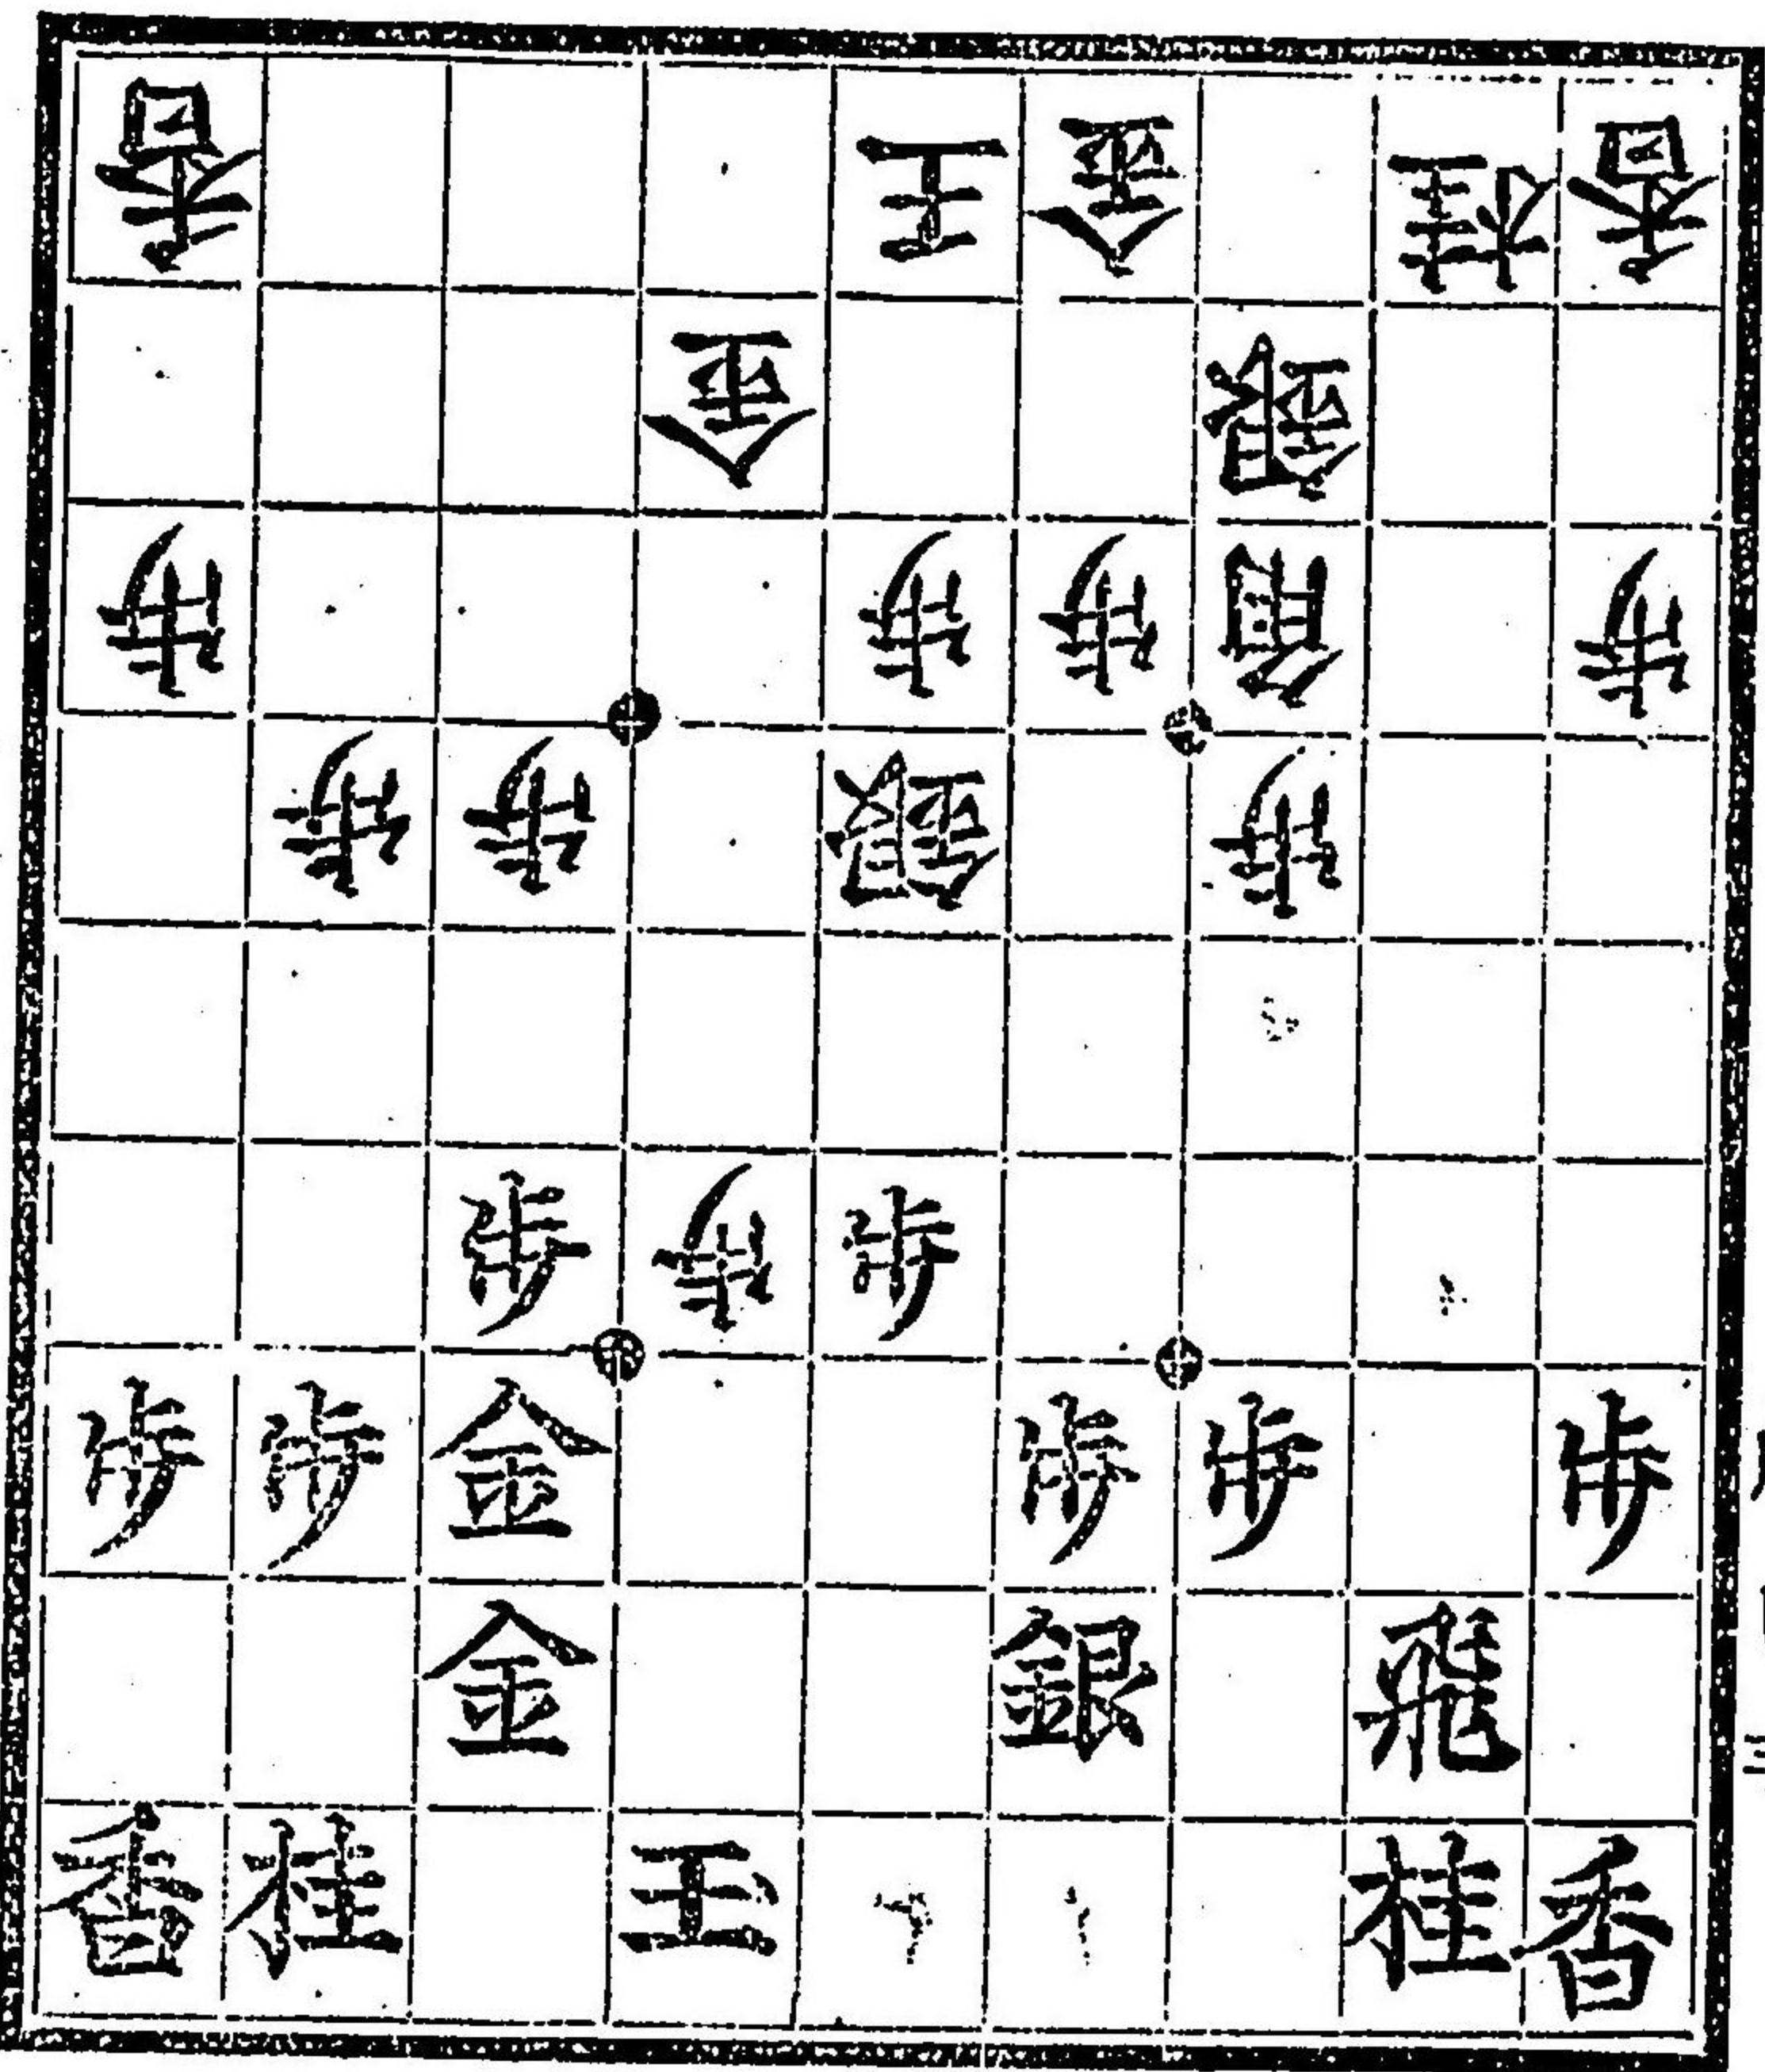 香 王 金 桂 香
金 銀
歩 歩 歩 角 歩
歩 歩 銀 歩
歩 歩 歩
歩 歩 金 歩 歩 歩
金 銀 飛
香 桂 玉 桂 香